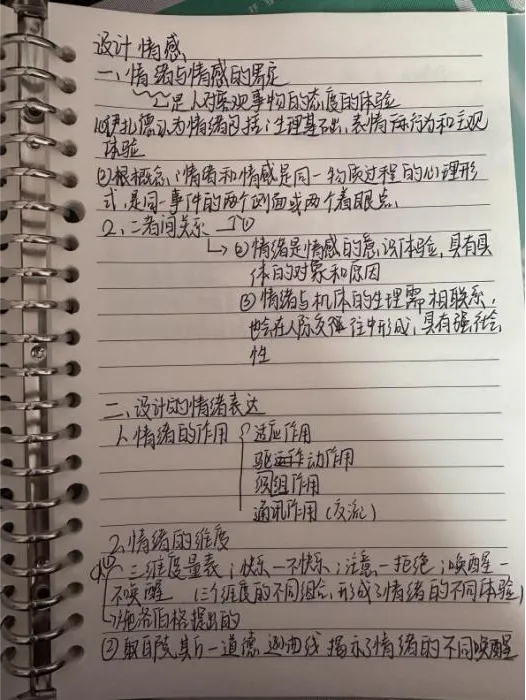 设计情感
一、情绪与情感的界定
是人对客观事物的态度的体验
伊扎德认为情绪包括:生理基础,表情 行为和主观
体验
②根概念:情绪和情感是同一物质过程的心理形
式,是同一事件的两个侧面或两个着眼点.
2、二者间关系 ①
②情绪是情感的 体验,具有具
体的对象和原因
③情绪与机体的生理需 相联系,
也会在人际交 往中形成,具有
性
二、设计的情绪表达
1、情绪的作用 适应作用
驱 动作用
组作用
通讯作用(交流)
2、情绪的维度
① 三维度量表:快乐一不快乐;注意一拒绝;唤醒一
不唤醒 (三个维度的不同组合,形成了情绪的不同体验)
施洛伯格提出的
② 斯一道德逊曲线揭示了情绪的不同唤醒